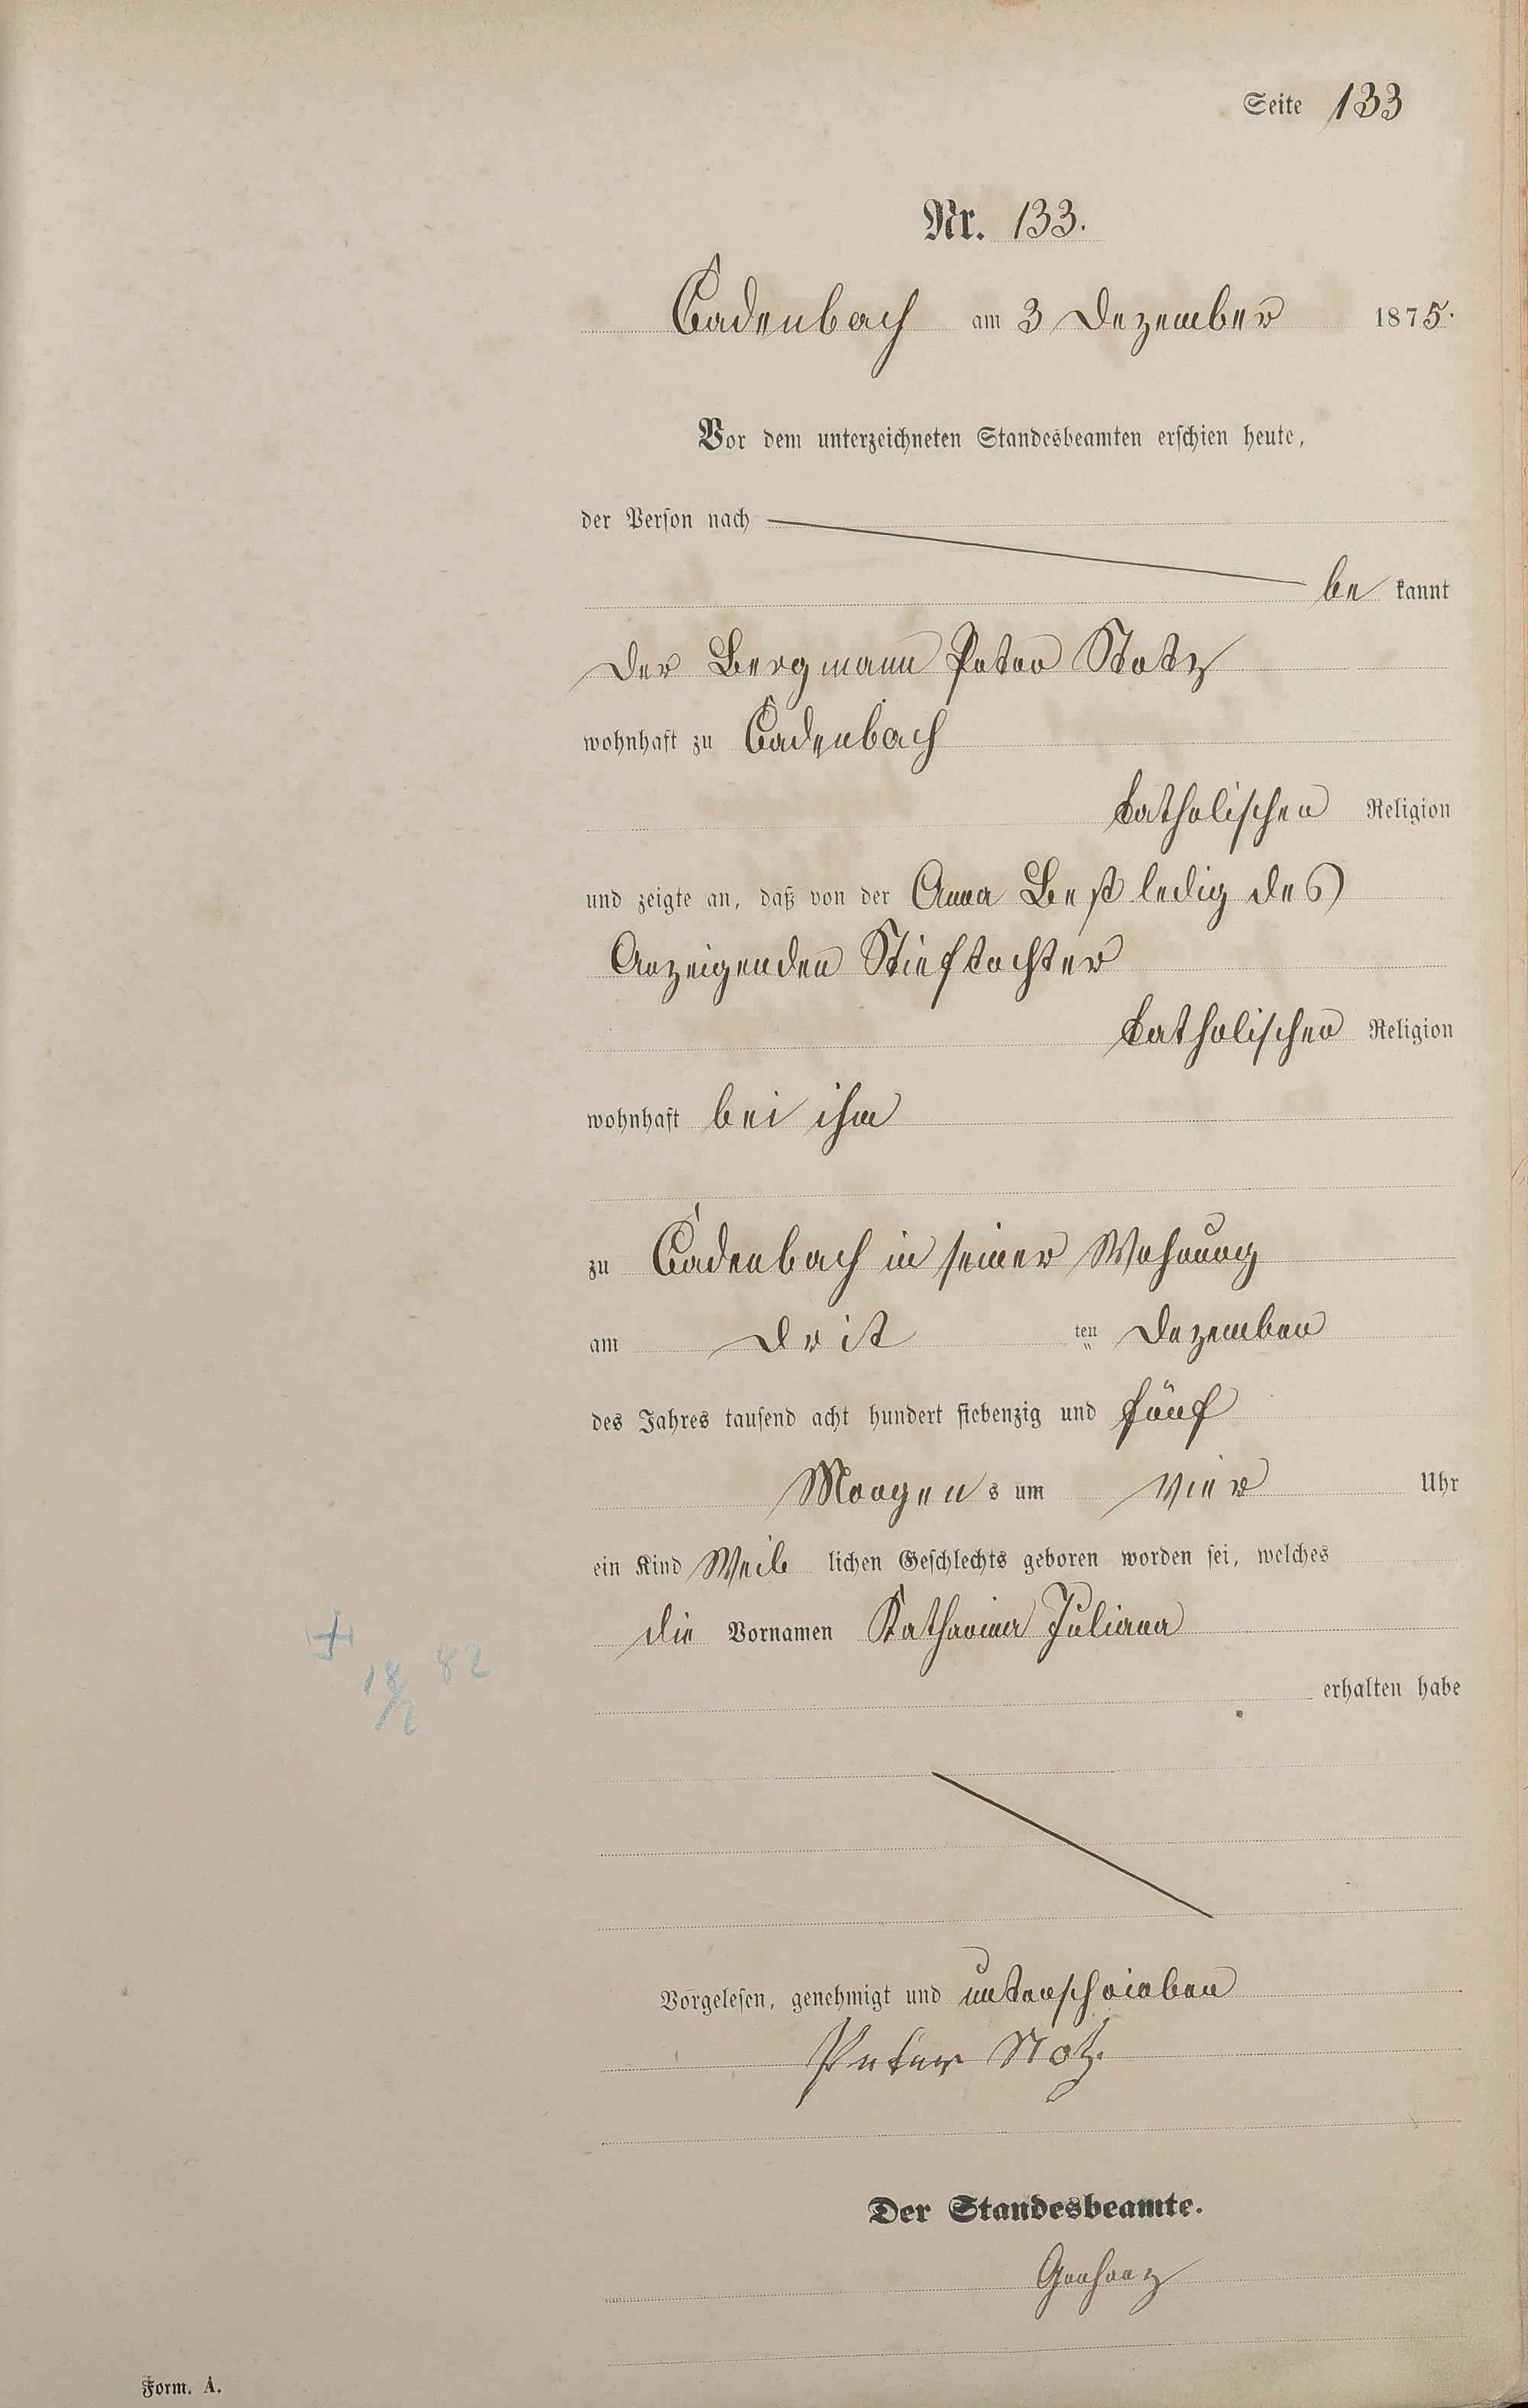 Seite 133
Nr. 133.
Cadenbach am 3 Dezember 1875.
Vor dem unterzeichneten Standesbeamten erschien heute,
der Person nach
be kannt
der Bergmann Peter Stotz
wohnhaft zu Cadenbach
katholischer Religion
und zeigte an, daß von der Anna Best ledig des
Anzeigenden Stieftochter
katholischer Religion
wohnhaft bei ihm
zu Cadenbach in seiner Wohnung
am drit ten Dezember
des Jahres tausend acht hundert siebenzig und fünf
Morgen s um vier Uhr
ein Kind Weib lichen Geschlechts geboren worden sei, welches
die Vornamen Katharina Juliana
+
18/2 82
erhalten habe
Vorgelesen, genehmigt und unterschrieben
Peter Stotz.
Der Standesbeamte.
Form. A.